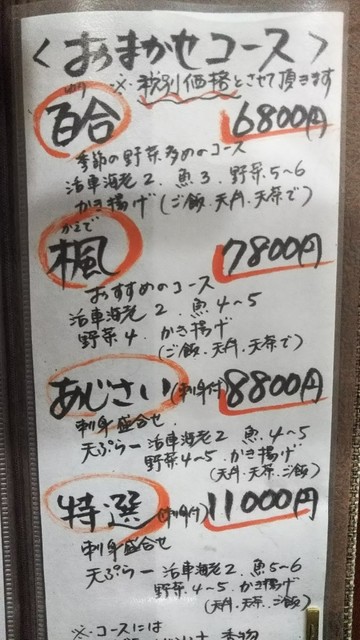 ＜おまかせコース＞
※税別価格とさせて頂きます
ゆり
百合 6800円
季節の野菜多めのコース
活車海老2 魚3 野菜5〜6
かき揚げ (ご飯.天丼.天茶で)
かえで
楓 7800円
おすすめのコース
活車海老2 魚4〜5
野菜4 かき揚げ
(ご飯.天丼.天茶で)
あじさい(刺身付)8800円
刺身盛合せ
天ぷらー活車海老2 魚4〜5
野菜4〜5 かき揚げ
(天丼.天茶.ご飯)
特選(刺身付)11000円
刺身盛合せ
天ぷらー活車海老2 魚5〜6
野菜4〜5.かき揚げ
(天丼.天茶.ご飯)
※コースには